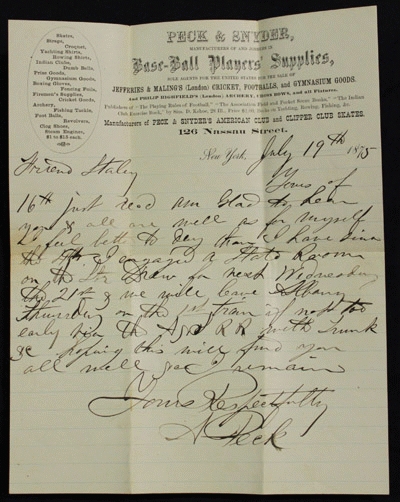 Skates,
Straps,
Croquet,
Yachting Shirts,
Rowing Shoes,
Indian Clubs,
Dumb Bells,
Prize Goods,
Gymnasium Goods,
Boxing Gloves,
Fencing Foils,
Firemen's Supplies,
Cricket Goods,
Archery,
Fishing Tackle,
Foot Balls,
Revolvers,
Clog Shoes,
Steam Engines,
$1 to $15 each.
PECK & SNYDER,
MANUFACTURERS OF AND DEALERS IN
Base-Ball Players' Supplies,
SOLE AGENTS FOR THE UNITED STATES FOR THE SALE OF
JEFFERIES & MALING'S (London) CRICKET, FOOTBALLS, and GYMNASIUM GOODS.
And PHILIP HIGHFIELD'S (London) ARCHERY, CROSS BOWS, and all Fixtures.
Publishers of "The Playing Rules of Football,"
Manufacturers of PECK & SNYDER'S AMERICAN CLUB and CLIPPER CLUB SKATES.
126 Nassau Street.
New York, July 19th 1875
Friend Staley
Yours of
16th just read am Glad to hear
you & all are well as for myself
I feel better to day than I have since
the 5th I engaged a State Room
on the Str Drew for next Wednesday
the 21st & we will leave Albany
Thursday on the 1st train if not too
early via the RR with trunk
&c hoping this will find you
all well &c I remain
Yours Respectfully
A Peck